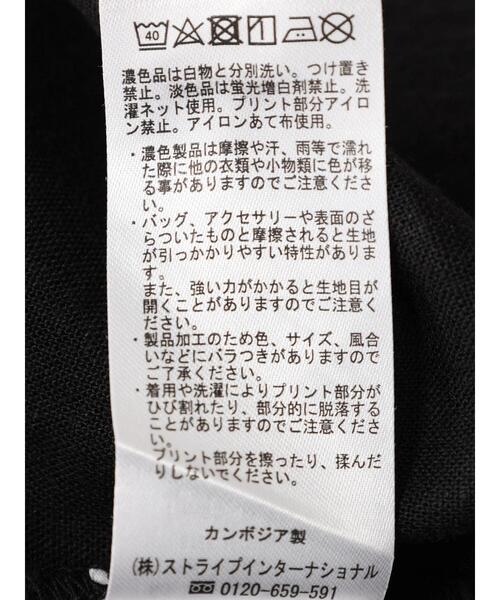 40
濃色品は白物と分別洗い。つけ置き
禁止。淡色品は蛍光増白剤禁止。洗
濯ネット使用。プリント部分アイロ
ン禁止。アイロンあて布使用。
・濃色製品は摩擦や汗、雨等で濡れ
た際に他の衣類や小物類に色が移
る事がありますのでご注意くださ
い。
・バッグ、アクセサリーや表面のざ
らついたものと摩擦されると生地
が引っかかりやすい特性がありま
す。
また、強い力がかかると生地目が
開くことがありますのでご注意く
ださい。
・製品加工のため色、サイズ、風合
いなどにバラつきがありますので
ご了承ください。
・着用や洗濯によりプリント部分が
ひび割れたり、部分的に脱落する
ことがありますのでご注意くださ
い。
プリント部分を擦ったり、揉んだ
りしないでください。
カンボジア製
(株)ストライプインターナショナル
0120-659-591